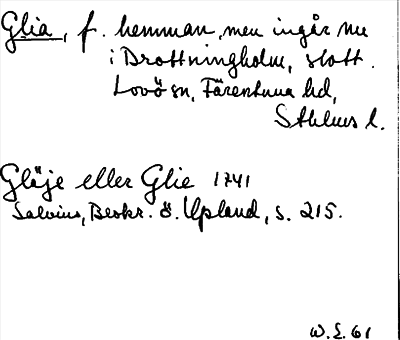 Glia, f. hemman, men ingår nu
i Drottningholm, slott.
Lovö sn, Färentuna hd,
Sthlms l.
Gläje eller Glie 1741
Salvius, Beskr. ö. Upland, s. 215.
W.E. 61